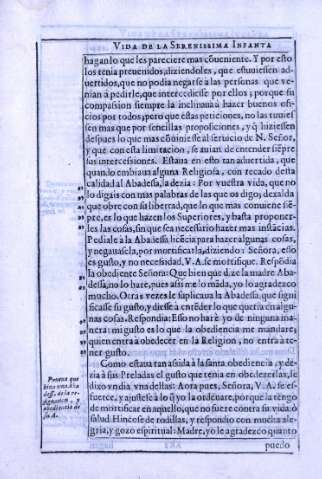 VIDA DE LA SERENISSIMA INFANTA
hagan lo que les pareciere mas cõueniente. Y por esto
los tenia preuenidos, diziendoles, que estuuiessen ad-
uertidos, que no podia negarse a las personas que ve-
nian a pedirle, que intercediesse por ellos; porque su
compassion siempre la inclinaua à hazer buenos ofi-
cios por todos; pero que estas peticiones, no las tuuies-
sen mas que por sencillas proposiciones, y q̃ hiziessen
despues lo que mas cõuiniesse al seruicio de N. Señor,
y que con esta limitacion, se auian de entender siẽpre
sus intercessiones. Estaua en esto tan aduertida, que
quando embiaua alguna Religiosa, con recado desta
calidad al Abadessa, la dezia: Por vuestra vida, que no
lo digais con mas palabras de las que os digo; dexalda
que obre con su libertad, que lo que mas conuiene siẽ-
pre, es lo que hazen los Superiores, y basta proponer-
les las cosas, sin que sea necessario hazer mas instãcias.
Pediale à la Abadessa licẽcia para hazer algunas cosas,
y negauasela, por mortificarla, diziendo: Señora, esso
es gusto, y no necessidad, V. A. se mortifique. Respõdia
la obediente Señora: Que bien que dize la madre Aba-
dessa, no lo harè, pues assi me lo mãda, yo lo agradezco
mucho. Otras vezes le suplicaua la Abadessa, que signi-
ficasse su gusto, y diesse a entẽder lo que queria en algu-
nas cosas. Respondia: Esso no harè yo de ninguna ma-
nera: mi gusto es lo que la obediencia me mandare,
quien entra à obedecer en la Religion, no entra à te-
ner gusto.
Como estaua tan asida à la santa obediencia, y de-
zia à sus Preladas el gusto que tenia en obedecerlas, le
dixo vn dia vna dellas: Aora pues, Señora, V. A. se es-
fuerce, y ajustese à lo q̃ yo la ordenare, porque la tengo
de mortificar en aquello, que no fuere contra su vida ò
salud. Hincose de rodillas, y respondio con mucha ale-
gria, y gozo espiritual: Madre, yo le agradezco quanto
puedo